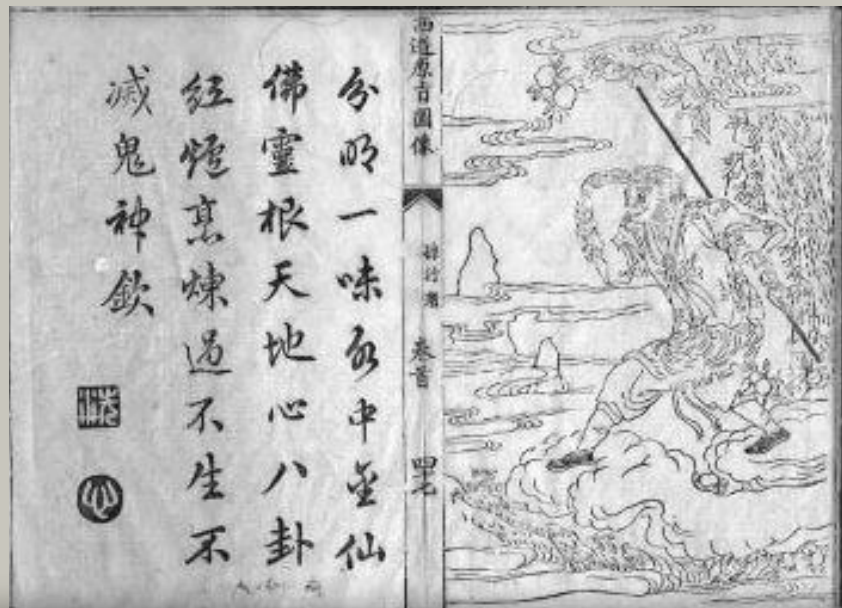 西遊原旨圖像
孫行者
卷首
分明一味水中金仙
佛靈根天地心八卦
經爐烹煉過不生不
滅鬼神欽